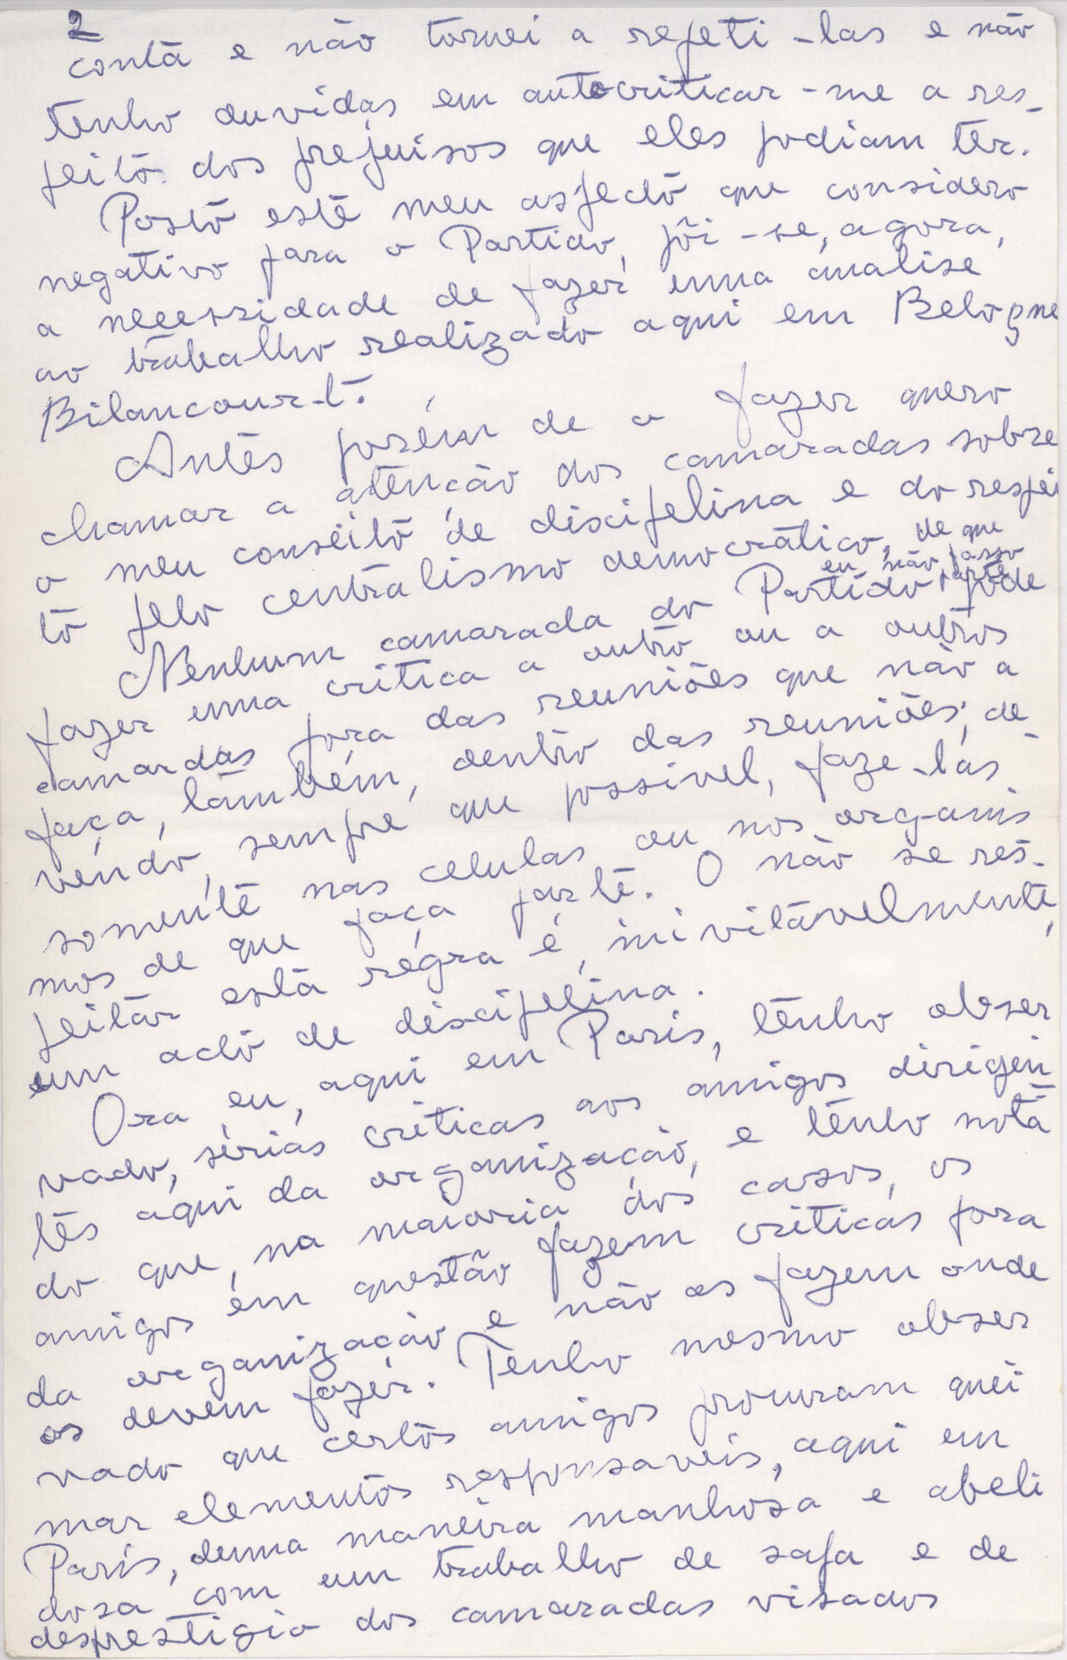 2
conta e não tornei a repeti-las e não
tenho duvidas em autocriticar-me a res-
peito dos prejuisos que eles podiam ter.
Posto este meu aspecto que considero
negativo para o Partido, põi-se, agora,
a necessidade de fazer uma analise
ao trabalho realizado aqui em Belogne
Bilancourt.
Antes porém de o fazer quero
chamar a atenção dos camaradas sobre
o meu conseito de disciplina e do respei
to pelo centralismo democrático, de que
eu não passo
Nenhum camarada do Partido, pode
fazer uma critica a outro ou a outros
camardas fora das reuniões que não a
faça, também, dentro das reuniões, de-
vendo, sempre que possivel, faze-las
somente nas celulas ou nos organis
mos de que faça parte. O não se res-
peitar esta regra é, inivitávelmente,
um acto de disciplina.
Ora eu, aqui em Paris, tenho obser
vado, sérias criticas aos amigos dirigen
tes aqui da organização, e tenho nota
do que, na maioria dos casos, os
amigos em questão fazem criticas fora
da organização e não as fazem onde
os devem fazer. Tenho mesmo obser
vado que certos amigos procuram quei
mar elementos responsaveis, aqui em
Paris, duma maneira manhosa e abeli
dosa com um trabalho de sapa e de
desprestigio dos camaradas visados